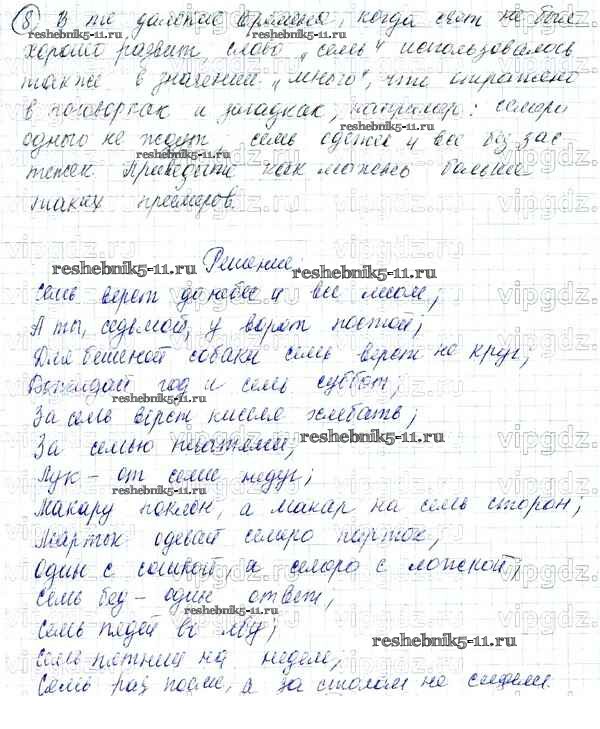 8) В те далекие времена, когда счет не был
хорошо развит, слово „семь" использовалось
также в значении „много", что отражено
в поговорках и загадках, например: семеро
одного не ждут, семь одежек и все без зас
тежек. Приведите как можно больше
таких примеров.
Решение:
Семь верст до небес и все лесом;
А ты, седьмой, у ворот постой;
Для бешеной собаки семь верст не круг;
Выжидай год и семь суббот;
За семь верст киселя хлебать;
За семью печатями;
Лук – от семи недуг;
Макару поклон, а макар на семь сторон;
Марток одевай семеро порток;
Один с сошкой, а семеро с ложкой;
Семь бед – один ответ;
Семь пядей во лбу;
Семь пятниц на неделе;
Семь раз поели, а за столом не сидели.
reshebnik5-11.ru
vipgdz.